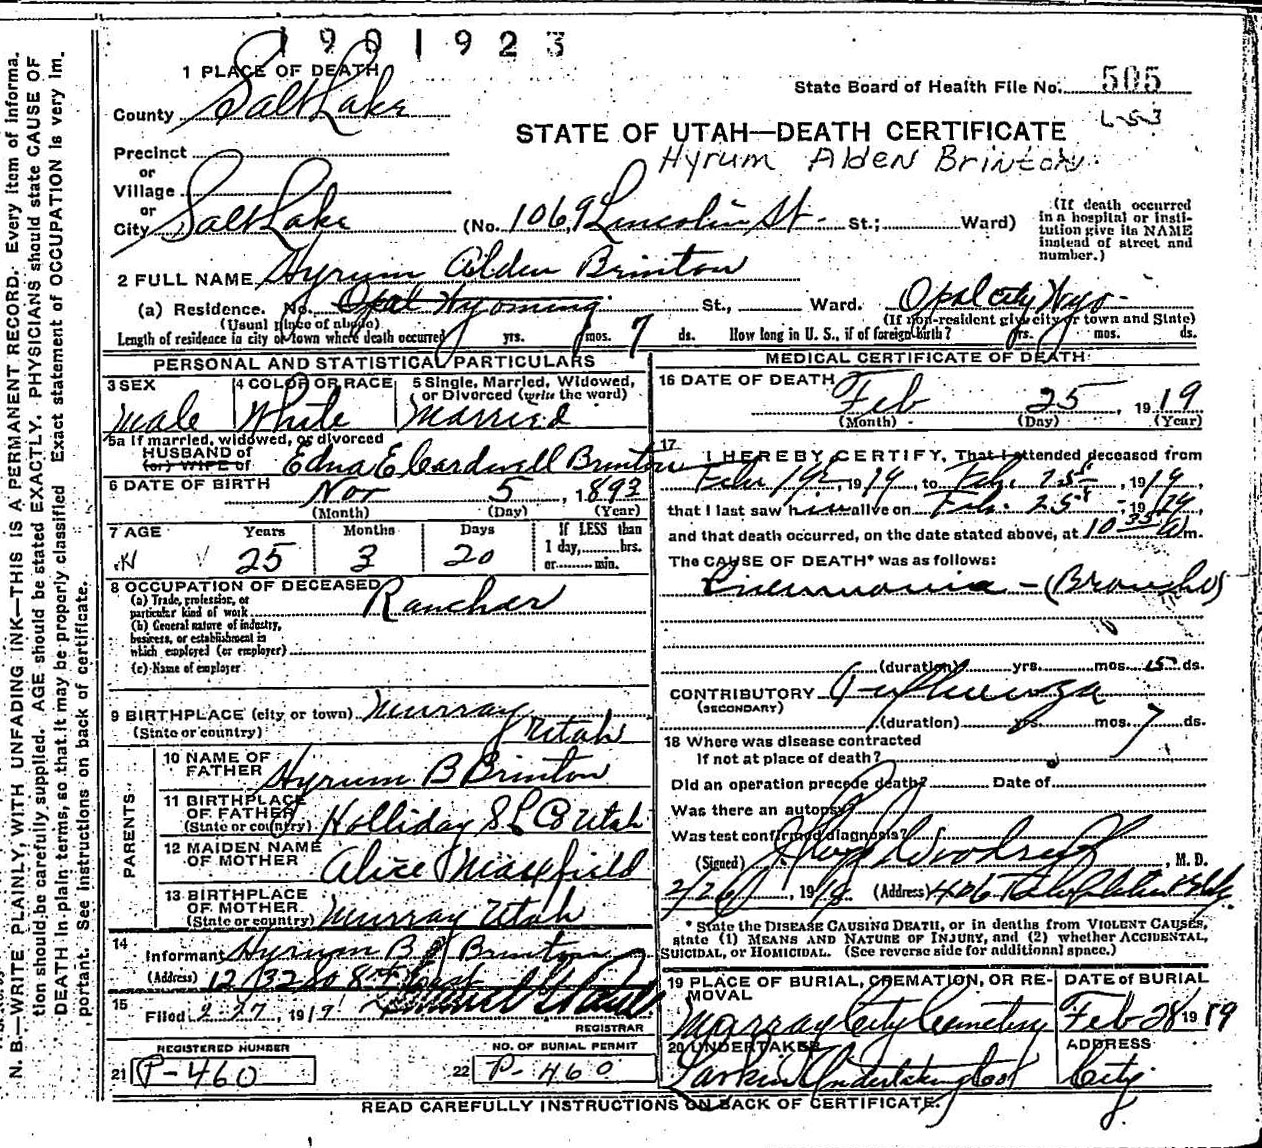 1901923
1 PLACE OF DEATH
State Board of Health File No. 505
County Salt Lake
6-53
STATE OF UTAH—DEATH CERTIFICATE
Hyrum Alden Brinton
Precinct
or
Village
or
City Salt Lake (No. 1069 Lincoln St. St.; Ward)
(If death occurred in a hospital or insti-
tution give its NAME
instead of street and
number.)
2 FULL NAME Hyrum Alden Brinton
(a) Residence. No. Opal Wyoming St., Ward. Opal city Wyo-
(Usual place of abode) (If non-resident give city or town and State)
Length of residence in city or town where death occurred yrs. mos. 7 ds. How long in U. S., if of foreign birth? yrs. mos. ds.
PERSONAL AND STATISTICAL PARTICULARS
3 SEX
Male
4 COLOR OR RACE
White
5 Single, Married, Widowed,
or Divorced (write the word)
Married
5a If married, widowed, or divorced
HUSBAND of
(or) WIFE of
Edna E Cardwell Brinton
6 DATE OF BIRTH Nov 5, 1893
(Month) (Day) (Year)
7 AGE Years Months Days If LESS than
1 day, hrs.
or min.
25 3 20
8 OCCUPATION OF DECEASED
(a) Trade, profession, or
particular kind of work Rancher
(b) General nature of industry,
business, or establishment in
which employed (or employer)
(c) Name of employer
9 BIRTHPLACE (city or town) Murray
(State or country) Utah
PARENTS
10 NAME OF
FATHER Hyrum B Brinton
11 BIRTHPLACE
OF FATHER
(State or country) Holliday S L Co Utah
12 MAIDEN NAME
OF MOTHER Alice Maxfield
13 BIRTHPLACE
OF MOTHER
(State or country) Murray Utah
14
Informant Hyrum B Brinton
(Address) 12 East
15
Filed 2-27, 1919
REGISTRAR
REGISTERED NUMBER
21 P-460
NO. OF BURIAL PERMIT
22 P-460
MEDICAL CERTIFICATE OF DEATH
16 DATE OF DEATH
Feb 25, 1919
(Month) (Day) (Year)
17
I HEREBY CERTIFY, That I attended deceased from
Feb 19, 1919, to Feb. 25, 1919,
that I last saw him alive on Feb. 25, 1919,
and that death occurred, on the date stated above, at 10 35 a m.
The CAUSE OF DEATH* was as follows:
Pneumonia - (Broncho)
(duration) yrs. mos. 5 ds.
CONTRIBUTORY Influenza
(SECONDARY)
(duration) yrs. mos. 7 ds.
18 Where was disease contracted
If not at place of death?
Did an operation precede death? Date of
Was there an autopsy?
Was test confirmed diagnosis?
(Signed) Woodruff, M. D.
2/26, 1919 (Address) 406 Bldg.
* State the DISEASE CAUSING DEATH, or in deaths from VIOLENT CAUSES,
state (1) MEANS AND NATURE OF INJURY, and (2) whether ACCIDENTAL,
SUICIDAL, or HOMICIDAL. (See reverse side for additional space.)
19 PLACE OF BURIAL, CREMATION, OR RE-
MOVAL
Murray City Cemetery
DATE OF BURIAL
Feb 28 1919
20 UNDERTAKER
Larkin Undertaking Co
ADDRESS
City
READ CAREFULLY INSTRUCTIONS ON BACK OF CERTIFICATE.
N. B.—WRITE PLAINLY, WITH UNFADING INK—THIS IS A PERMANENT RECORD. Every item of informa-
tion should be carefully supplied. AGE should be stated EXACTLY. PHYSICIANS should state CAUSE OF
DEATH in plain terms, so that it may be properly classified. Exact statement of OCCUPATION is very im-
portant. See instructions on back of certificate.